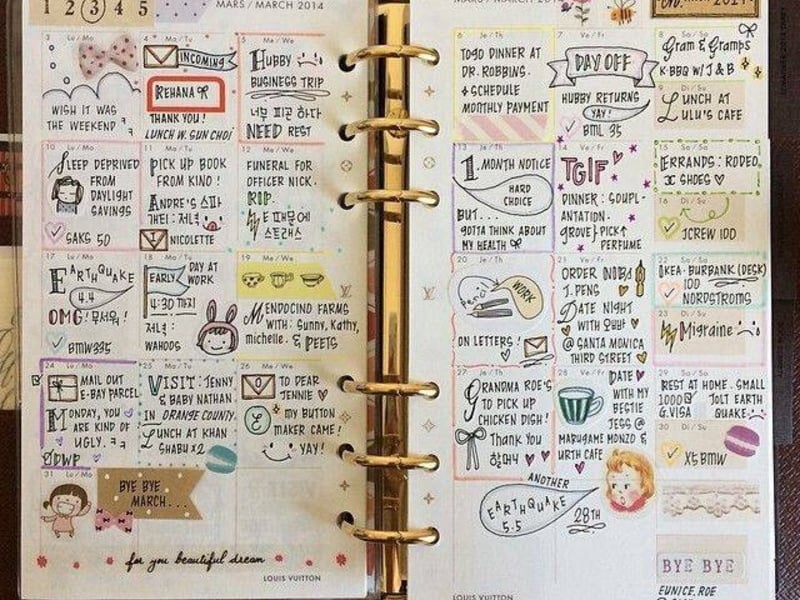 1 2 3 4 5
MARS / MARCH 2014
3 Lu / Mo
WISH IT WAS
THE WEEKEND ㅋ
4 Ma / Tu
INCOMING
REHANA
THANK YOU!
LUNCH W. SUN CHOI
5 Me / We
HUBBY
BUSINESS TRIP
너무 피곤 하다
NEED REST
10 Lu / Mo
SLEEP DEPRIVED
FROM
DAYLIGHT
SAVINGS
SAKS 50
11 Ma / Tu
PICK UP BOOK
FROM KINO!
ANDRE'S 스파
NICOLETTE
12 Me / We
FUNERAL FOR
OFFICER NICK.
RIP.
때문에
스트레스
17 Lu / Mo
EARTHQUAKE
4.4
OMG! 무서워!
BMW335
18 Ma / Tu
EARLY DAY AT
WORK
4:30 까지
저녁:
WAHOOS
19 Me / We
MENDOCINO FARMS
WITH: Sunny, Kathy,
michelle. & PEETS
24 Lu / Mo
MAIL OUT
E-BAY PARCEL
MONDAY, YOU
ARE KIND OF
UGLY. ㅋㅋ
DWP
25 Ma / Tu
VISIT: JENNY
& BABY NATHAN
IN ORANGE COUNTY.
LUNCH AT KHAN
SHABU X2
26 Me / We
TO DEAR
JENNIE
my BUTTON
MAKER CAME!
YAY!
31 Lu / Mo
BYE BYE
MARCH...
for you beautiful dream
LOUIS VUITTON
MARS / MARCH 2014
2014
6 Je / Th
TOGO DINNER AT
DR. ROBBINS.
+ SCHEDULE
MONTHLY PAYMENT
7 Ve / Fr
DAY OFF
HUBBY RETURNS
YAY!
BML 35
8 Sa / Sa
Gram & Gramps
K-BBQ W/ J & B
9 Di / Su
LUNCH AT
LULU'S CAFE
13 Je / Th
1. MONTH NOTICE
HARD
CHOICE
BUT...
GOTTA THINK ABOUT
MY HEALTH
14 Ve / Fr
TGIF
DINNER: SOUPL-
ANTATION.
GROVE) PICK↑
PERFUME
15 Sa / Sa
ERRANDS: RODEO
SHOES
16 Di / Su
JCREW 100
20 Je / Th
pencil
WORK
ON LETTERS!
21 Ve / Fr
ORDER
J. PENS
DATE NIGHT
WITH
@ SANTA MONICA
THIRD STREET
22 Sa / Sa
IKEA-BURBANK (DESK)
100
NORDSTROMS
23 Di / Su
Migraine
27 Je / Th
GRANDMA ROE'S
TO PICK UP
CHICKEN DISH!
Thank You
할머니
28 Ve / Fr
DATE
WITH MY
BESTIE
JESS @
MARUGAME MONZO &
URTH CAFE
29 Sa / Sa
REST AT HOME. SMALL
1000 JOLT EARTH
G.VISA QUAKE
30 Di / Su
X5 BMW
ANOTHER
EARTHQUAKE
5.5
28TH
BYE BYE
EUNICE, ROE
LOUIS VUITTON